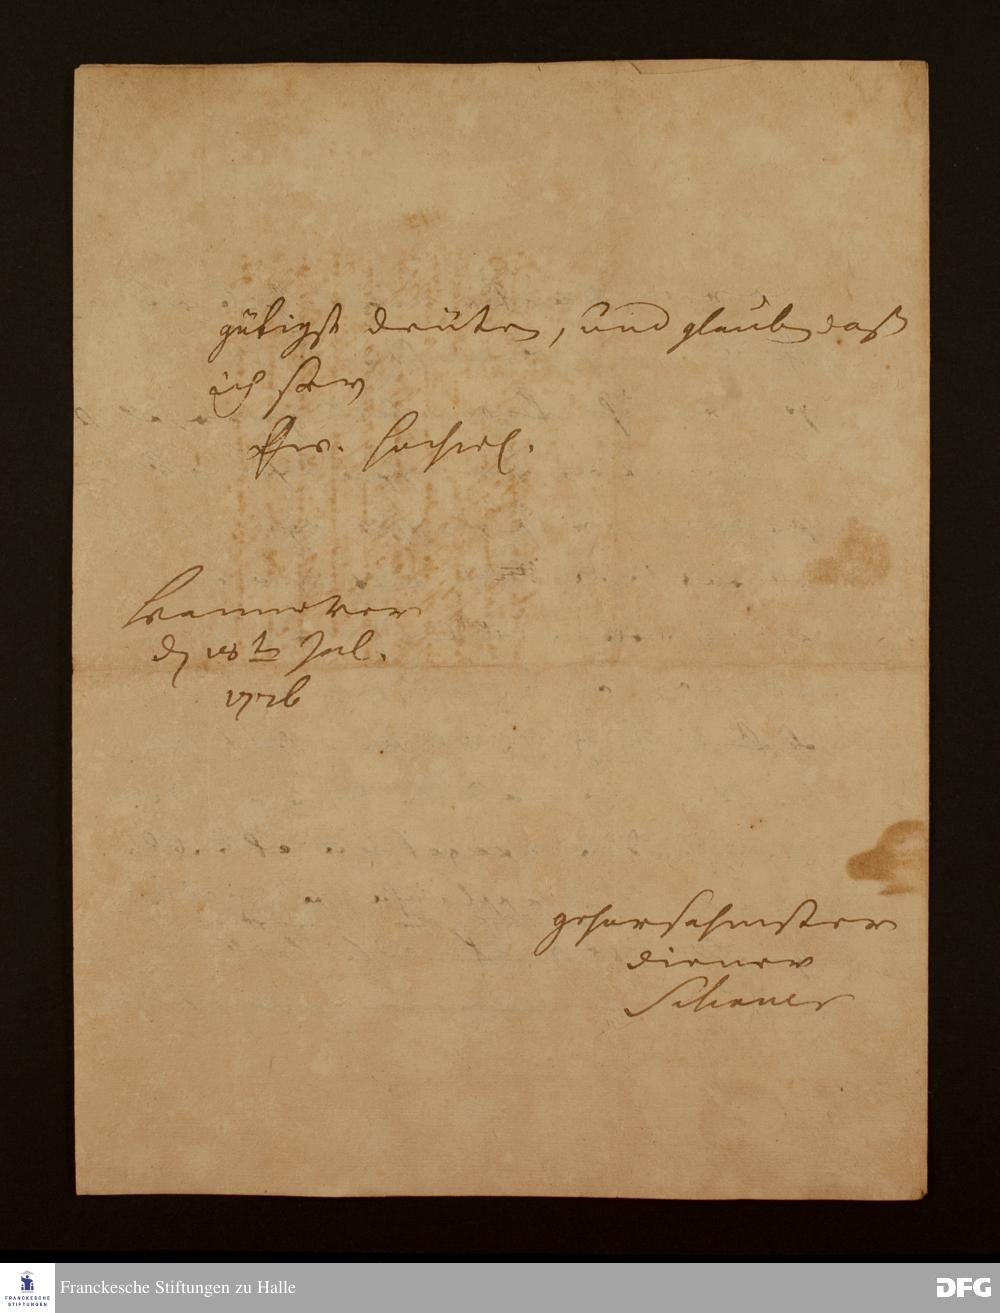 gütigst deuten, und glauben daß
ich sey
Ew. Hochwl.
Hannover
d 18 ten Jul.
1726
gehorsahmster
diener
FRANCKESCHE
STIFTUNGEN
Franckesche Stiftungen zu Halle
DFG